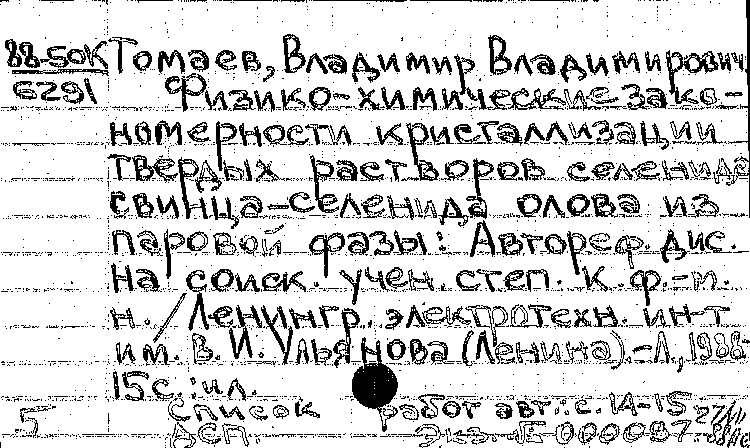 88-50К Томаев, Владимир Владимирович
6291 Физико-химические зако-
номерности кристаллизации
твердых растворов селенида
свинца-селенида олова из
паровой фазы: Автореф. дис.
на соиск. учен. степ. к. ф.-м.
н. / Ленингр. электротехн. ин-т
им. В. И. Ульянова (Ленина).-Л, 1988-
15с.: ил.
5 Список работ авт.: с. 14-15
ДСП. Экз. № 000087